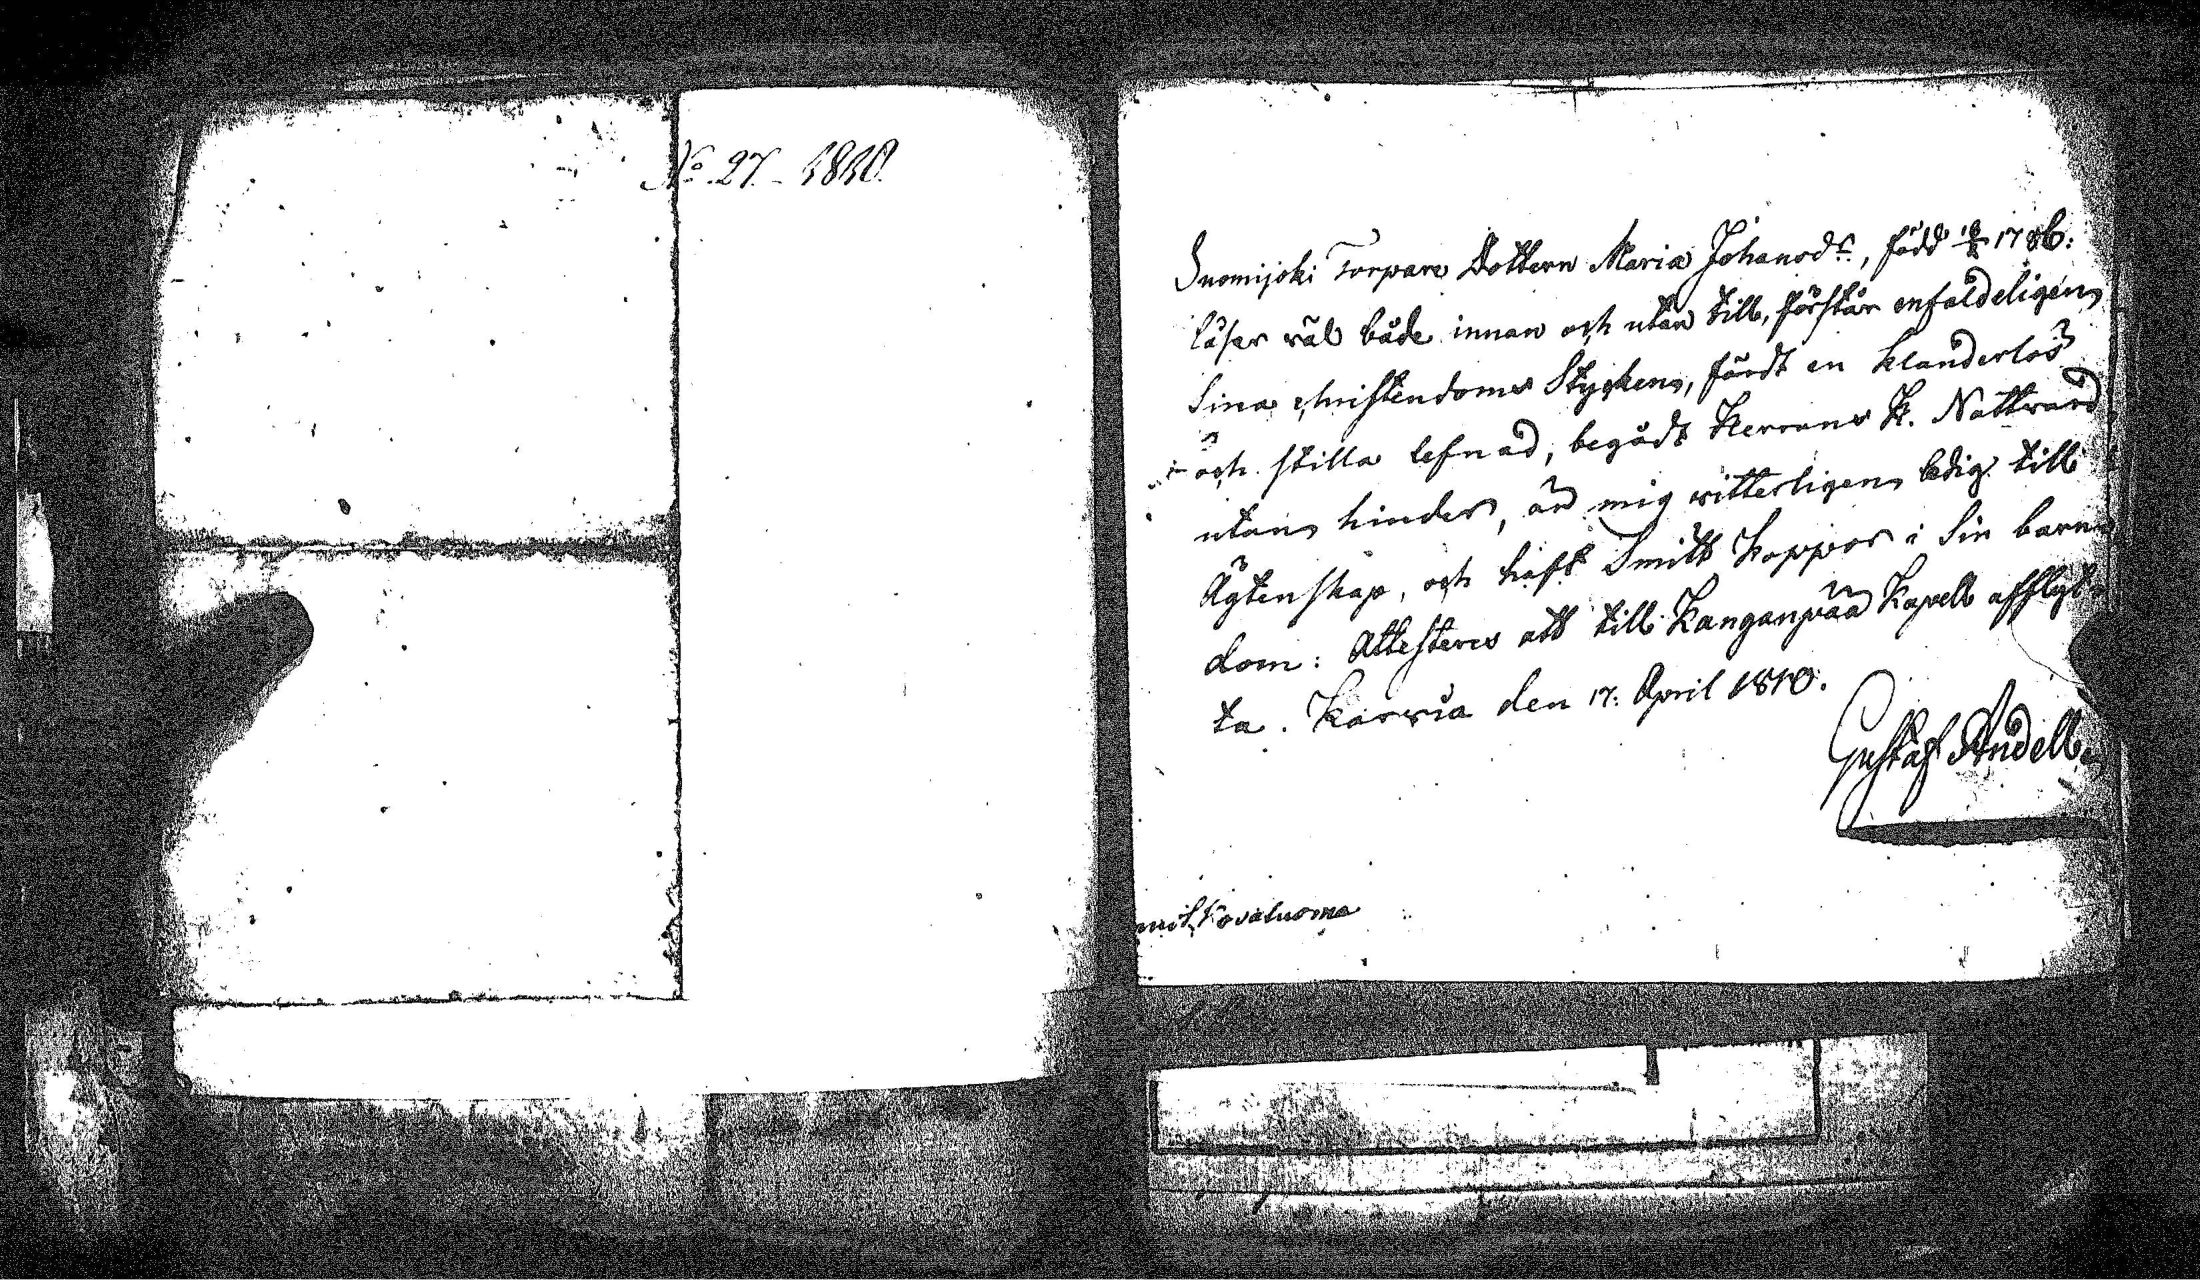 No. 27. - 1810.
Suomijoki Torpare Dottern Maria Johansdr, född 1786:
läser väl både innan och utan till, förstår enfaldeligen
Sina christendoms Stycken, fördt en klanderlös
och stilla lefnad, begådt Herrans H. Nattvard
utan hinder, är mig witterligen ledig till
Ägtenskap, och haft Smitt koppor i Sin barn-
dom: Attesteres att till Kanganpää Kapell afflyt-
ta. Karvia den 17: April 1810.
Gustaf Andell.
Kovaluoma